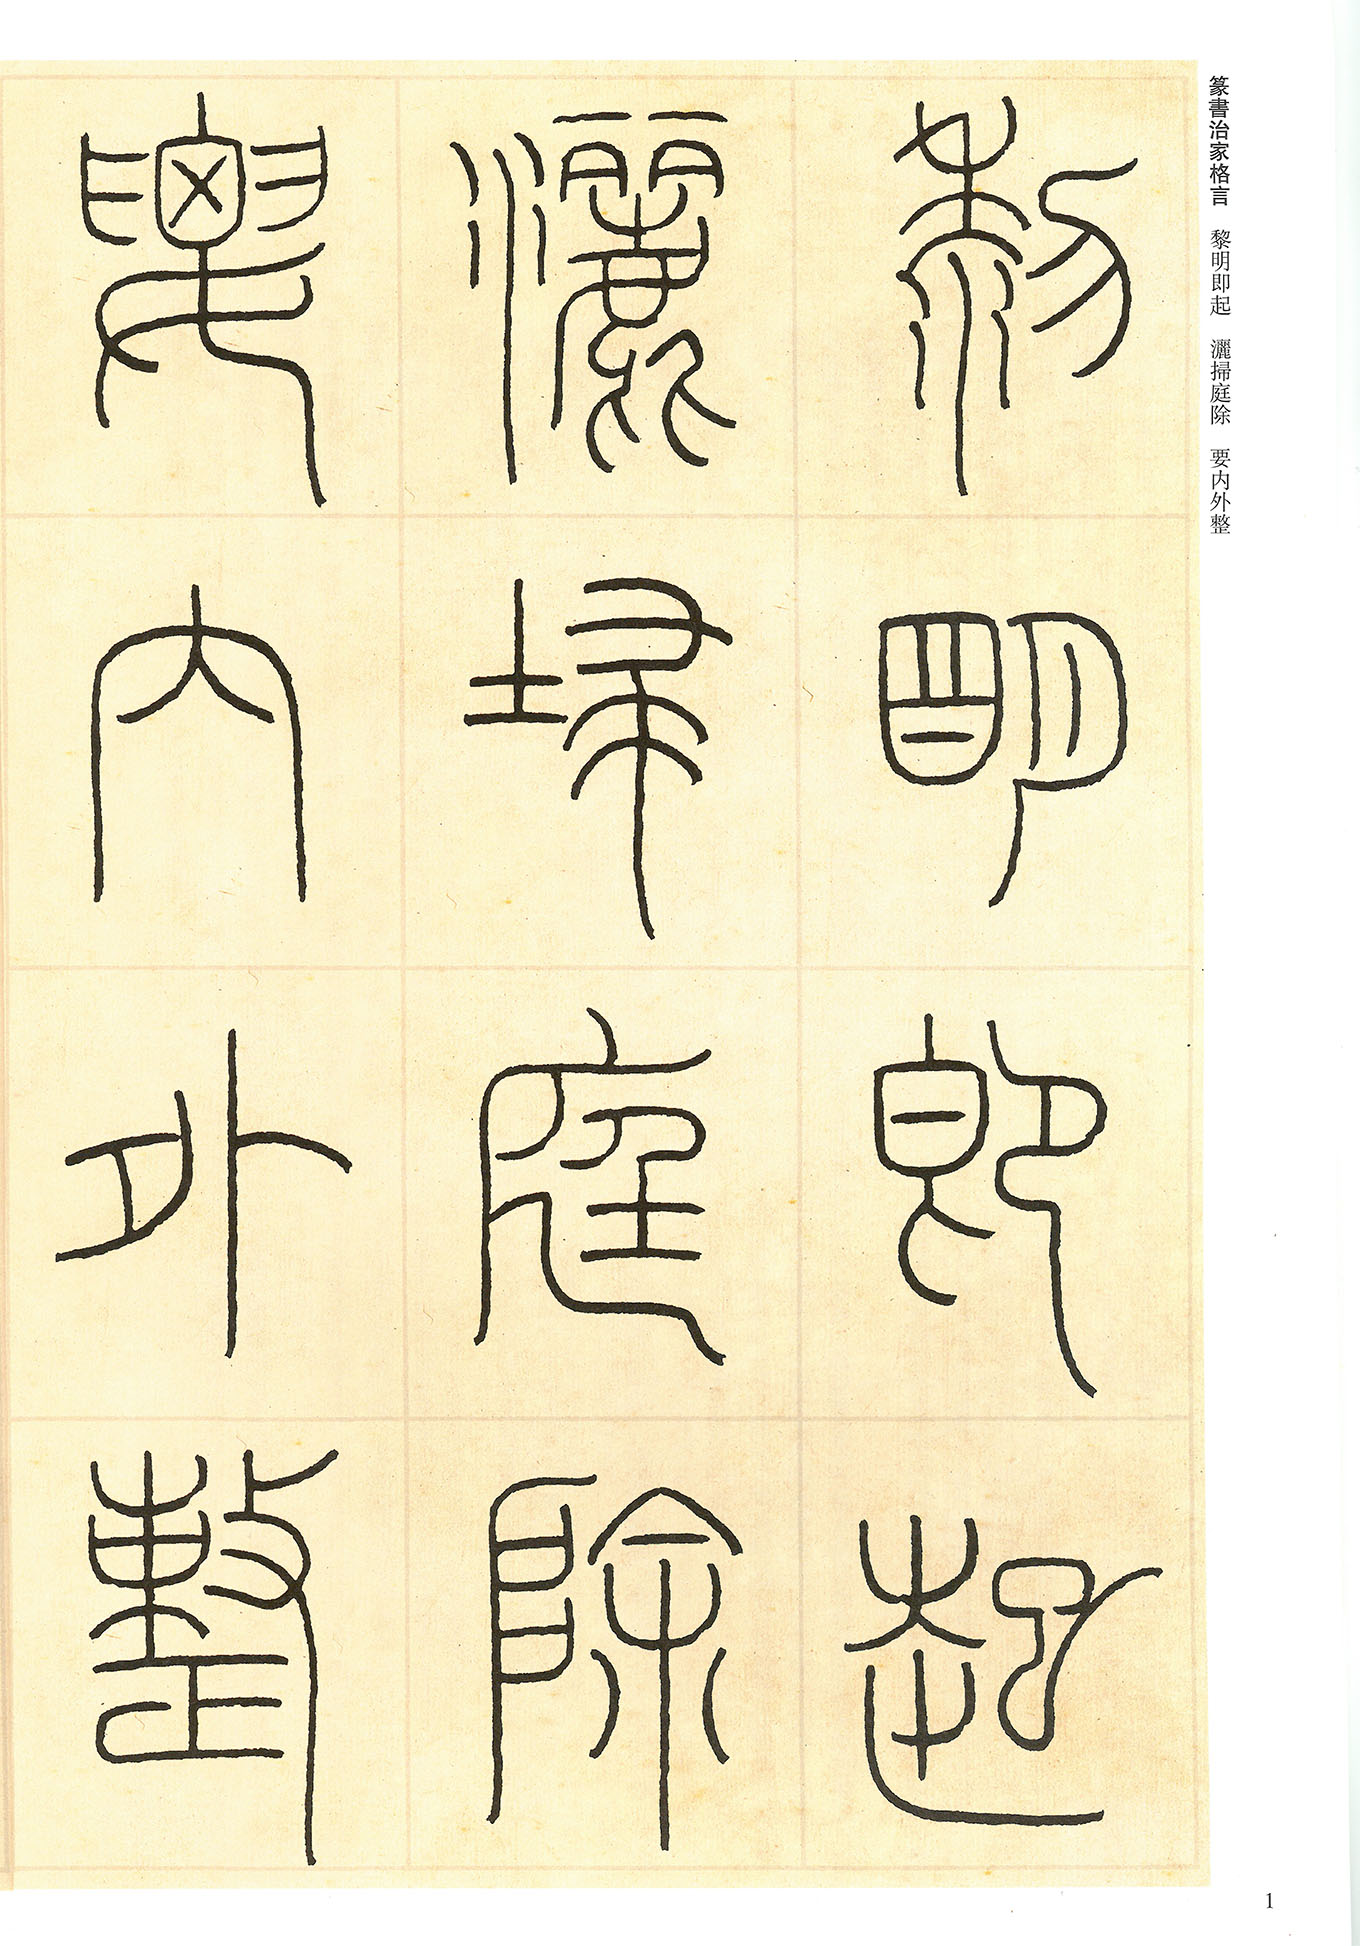 篆書治家格言　黎明即起　灑掃庭除　要内外整
黎明即起
灑埽庭除
要内外整
1